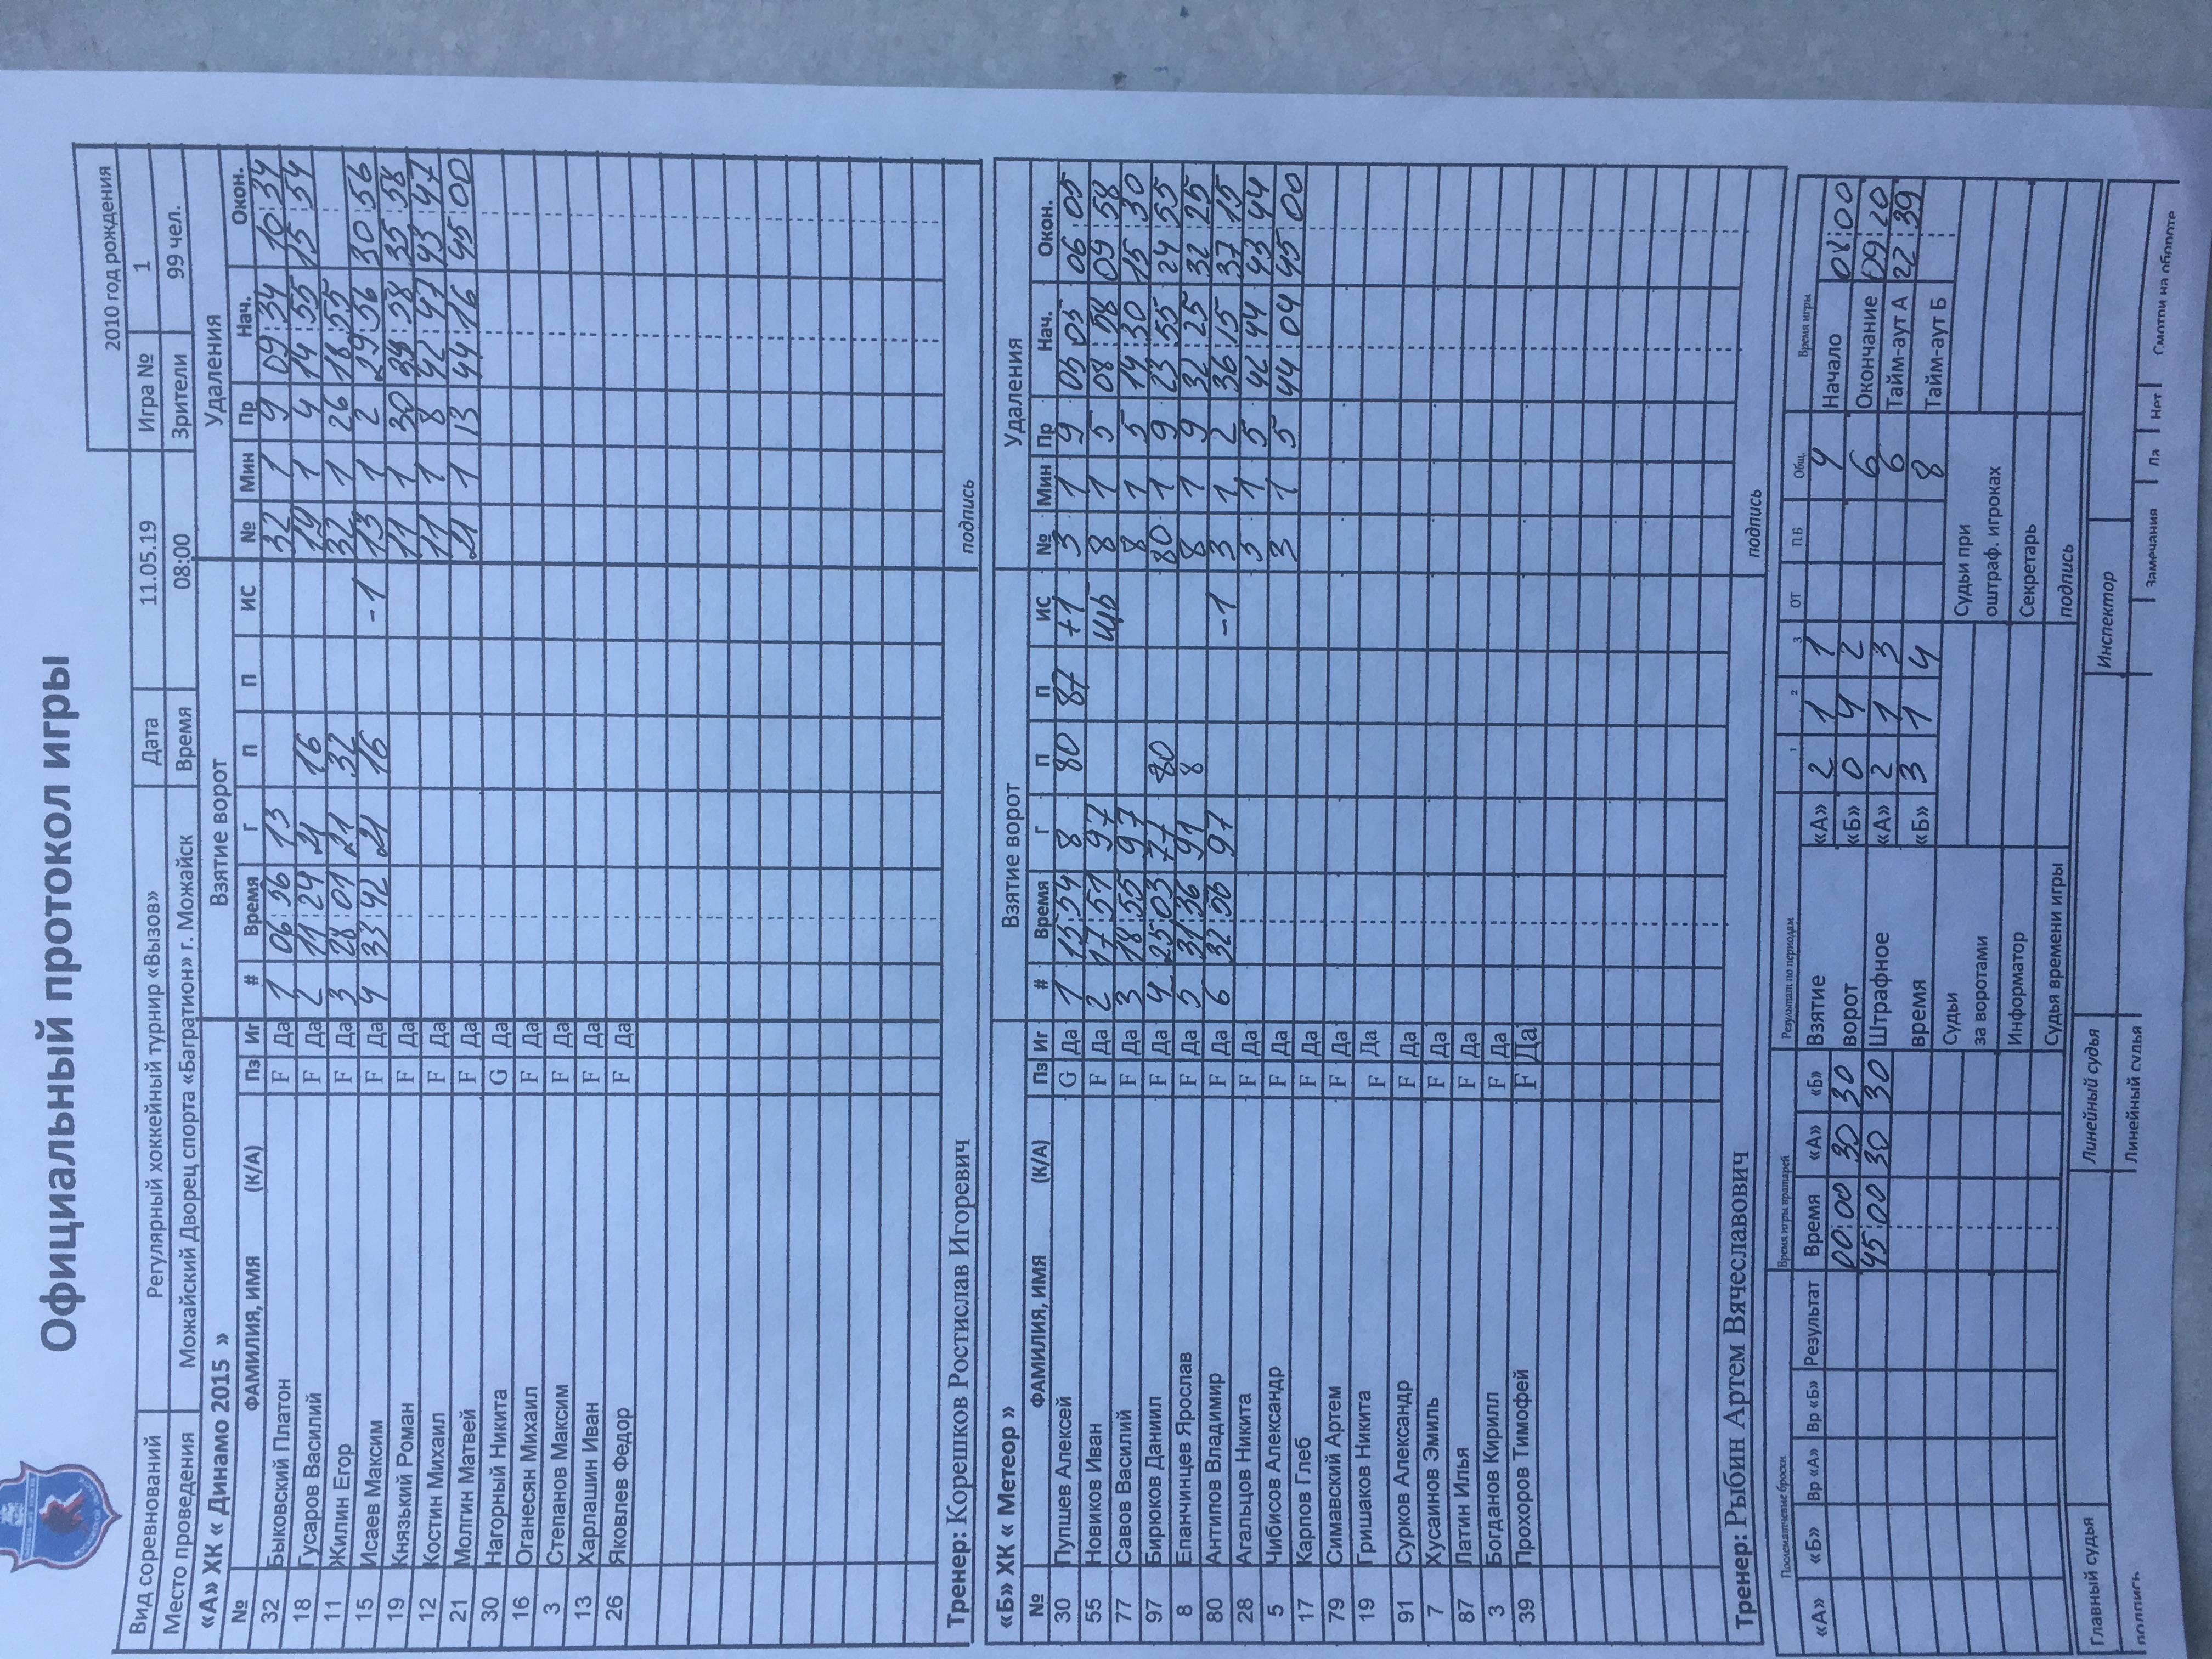 Официальный протокол игры
2010 год рождения
Вид соревнований Регулярный хоккейный турнир «Вызов» Дата 11.05.19 Игра № 1
Место проведения Можайский Дворец спорта «Багратион» г. Можайск Время 08:00 Зрители 99 чел.
«А» ХК « Динамо 2015 » Взятие ворот Удаления
№ ФАМИЛИЯ, ИМЯ (К/А) Пз Иг # Время Г П П ИС № Мин Пр Нач. Окон.
32 Быковский Платон F Да 1 06:56 13 32 1 9 09:34 10:34
18 Гусаров Василий F Да 2 11:24 21 16 19 1 4 14:55 15:54
11 Жилин Егор F Да 3 28:01 21 32 32 1 26 18:55
15 Исаев Максим F Да 4 33:42 21 16 -1 13 1 2 29:56 30:56
19 Князький Роман F Да 11 1 30 34:58 35:58
12 Костин Михаил F Да 11 1 8 42:47 43:47
21 Молгин Матвей F Да 21 1 13 44:16 45:00
30 Нагорный Никита G Да
16 Оганесян Михаил F Да
3 Степанов Максим F Да
13 Харлашин Иван F Да
26 Яковлев Федор F Да
Тренер: Корешков Ростислав Игоревич подпись
«Б» ХК « Метеор » Взятие ворот Удаления
№ ФАМИЛИЯ, ИМЯ (К/А) Пз Иг # Время Г П П ИС № Мин Пр Нач. Окон.
30 Пупшев Алексей G Да 1 15:54 8 80 87 +1 3 1 9 05:05 06:05
55 Новиков Иван F Да 2 17:51 97 шб 8 1 5 08:58 09:58
77 Савов Василий F Да 3 18:55 97 8 1 5 14:30 15:30
97 Бирюков Даниил F Да 4 25:03 77 80 80 1 9 23:55 24:55
8 Епанчинцев Ярослав F Да 5 31:36 91 8 8 1 9 32:25 32:25
80 Антипов Владимир F Да 6 32:56 97 -1 3 1 2 36:15 37:15
28 Агальцов Никита F Да 3 1 5 42:44 43:44
5 Чибисов Александр F Да 3 1 5 44 04 45 00
17 Карпов Глеб F Да
79 Симавский Артем F Да
19 Гришаков Никита F Да
91 Сурков Александр F Да
7 Хусаинов Эмиль F Да
87 Латин Илья F Да
3 Богданов Кирилл F Да
39 Прохоров Тимофей F Да
Тренер: Рыбин Артем Вячеславович подпись
Послематчевые броски Время игры вратарей Результат по периодам Время игры
«А» «Б» Вр «А» Вр «Б» Результат Время «А» «Б» Взятие «А» 1 2 3 ОТ П.Б Общ.
00:00 30 30 ворот «А» 2 1 1 4 Начало 08:00
45:00 30 30 «Б» 0 4 2 6 Окончание 09:20
Штрафное «А» 2 1 3 6 Тайм-аут А 22:39
время «Б» 3 1 4 8 Тайм-аут Б
Судьи за воротами Судьи при оштраф. игроках
Информатор Секретарь
Судья времени игры подпись
Главный судья Линейный судья Инспектор
подпись Линейный судья Замечания Да Нет Смотри на обороте